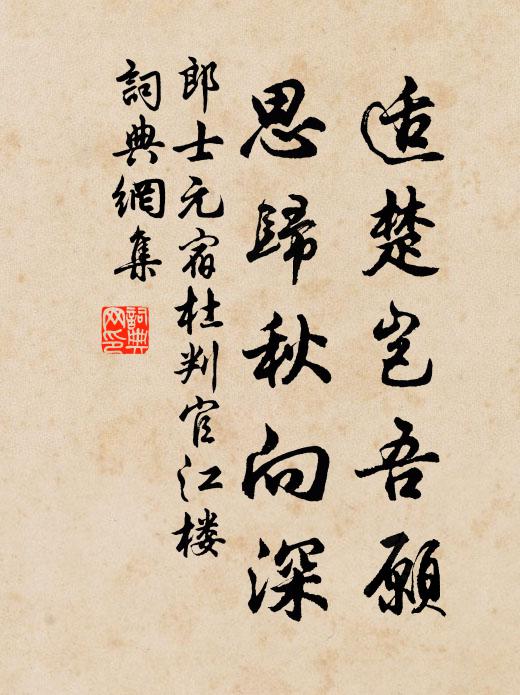 适楚岂吾願
思歸秋向深
郎士元宿杜判官江楼
詞典網集
詞典网印